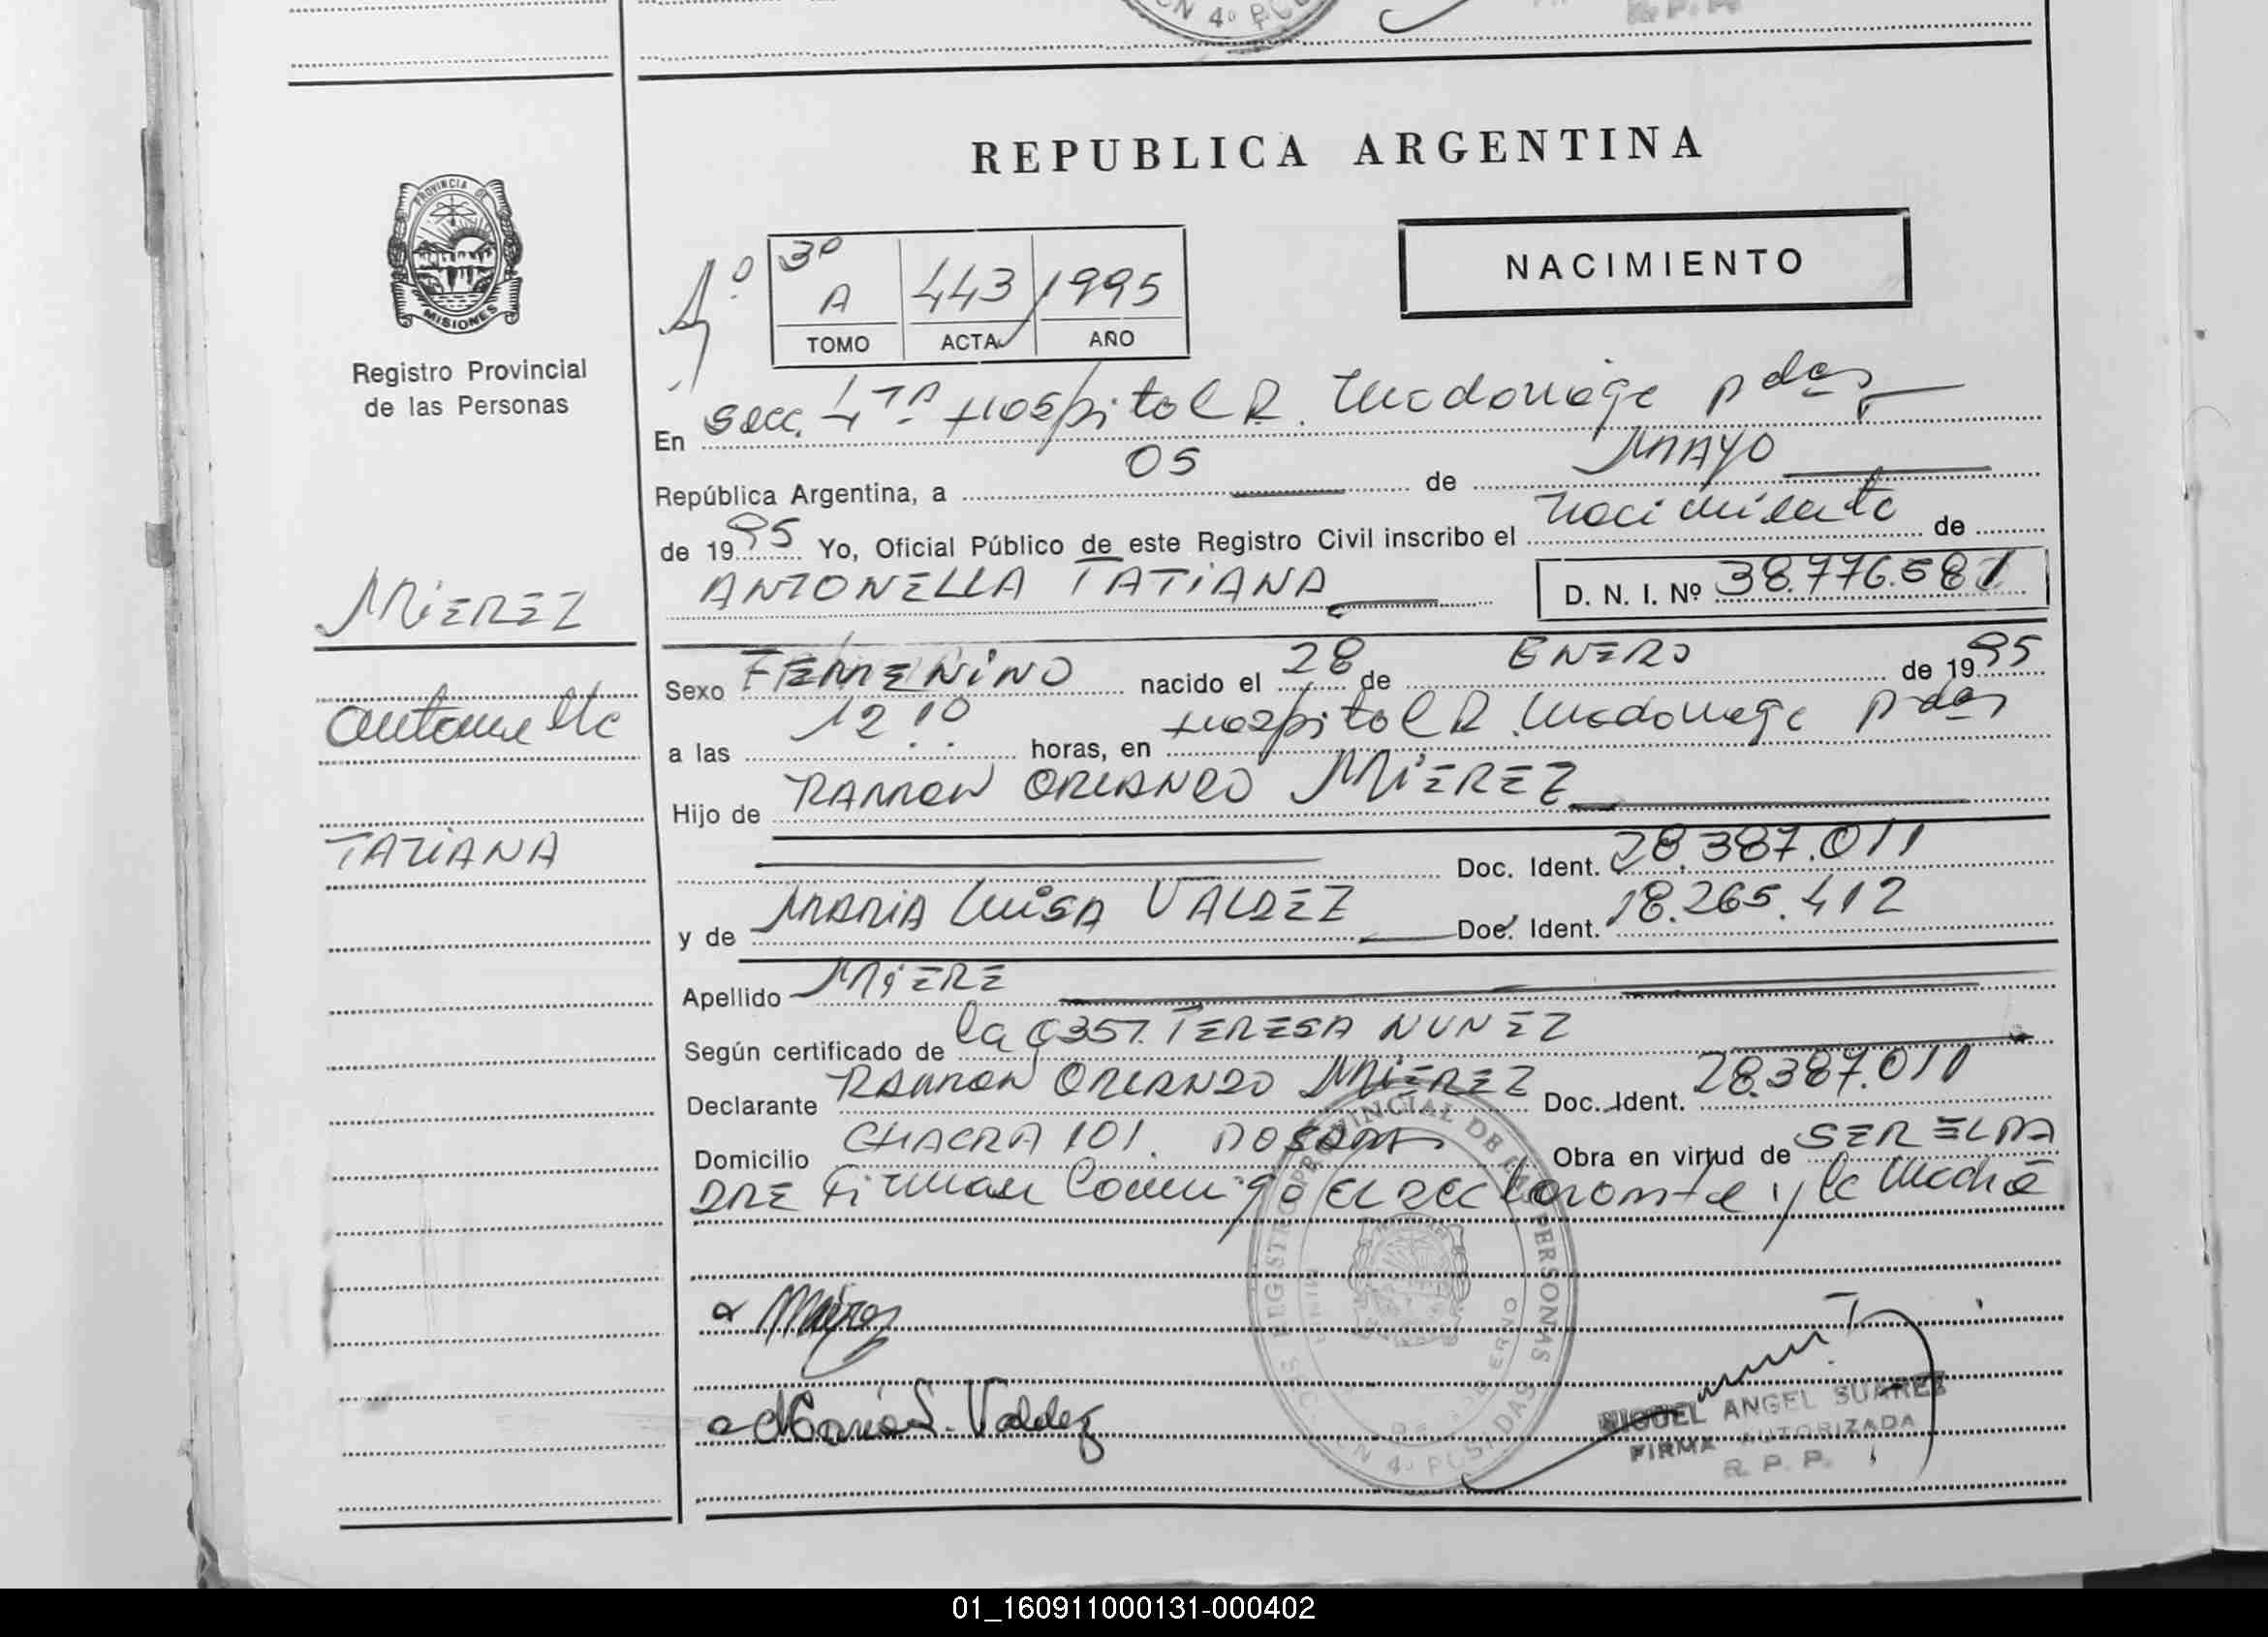 REPUBLICA ARGENTINA
PROVINCIA DE
MISIONES
Registro Provincial
de las Personas
4º
3º
A 443 1995
TOMO ACTA AÑO
NACIMIENTO
En Secc. 4TA Hospital R. Madariaga pdas
República Argentina, a 05 de MAYO
de 1995 Yo, Oficial Público de este Registro Civil inscribo el nacimiento de
ANTONELLA TATIANA D. N. I. Nº 38.776.581
MiEREZ
Antonella
TATIANA
Sexo FEMENiNO nacido el 28 de ENERO de 1995
a las 12 10 horas, en Hospital R. Madariaga pdas
Hijo de RAMON ORLANDO MiEREZ
Doc. Ident. 28.387.011
y de MARIA LUiSA VALDEZ Doc. Ident. 18.265.412
Apellido MiERE
Según certificado de la TERESA NUNEZ
Declarante RAMON ORLANDO MiEREZ Doc. Ident. 28.387.011
Domicilio CHACRA 101. POSADAS Obra en virtud de SER EL PA
DRE Firman Conmigo el declarante y la madre
Maria L. Valdez
REGISTRO PROVINCIAL DE LAS PERSONAS
MIGUEL ANGEL SUAREZ
FIRMA AUTORIZADA
R. P. P.
01_160911000131-000402